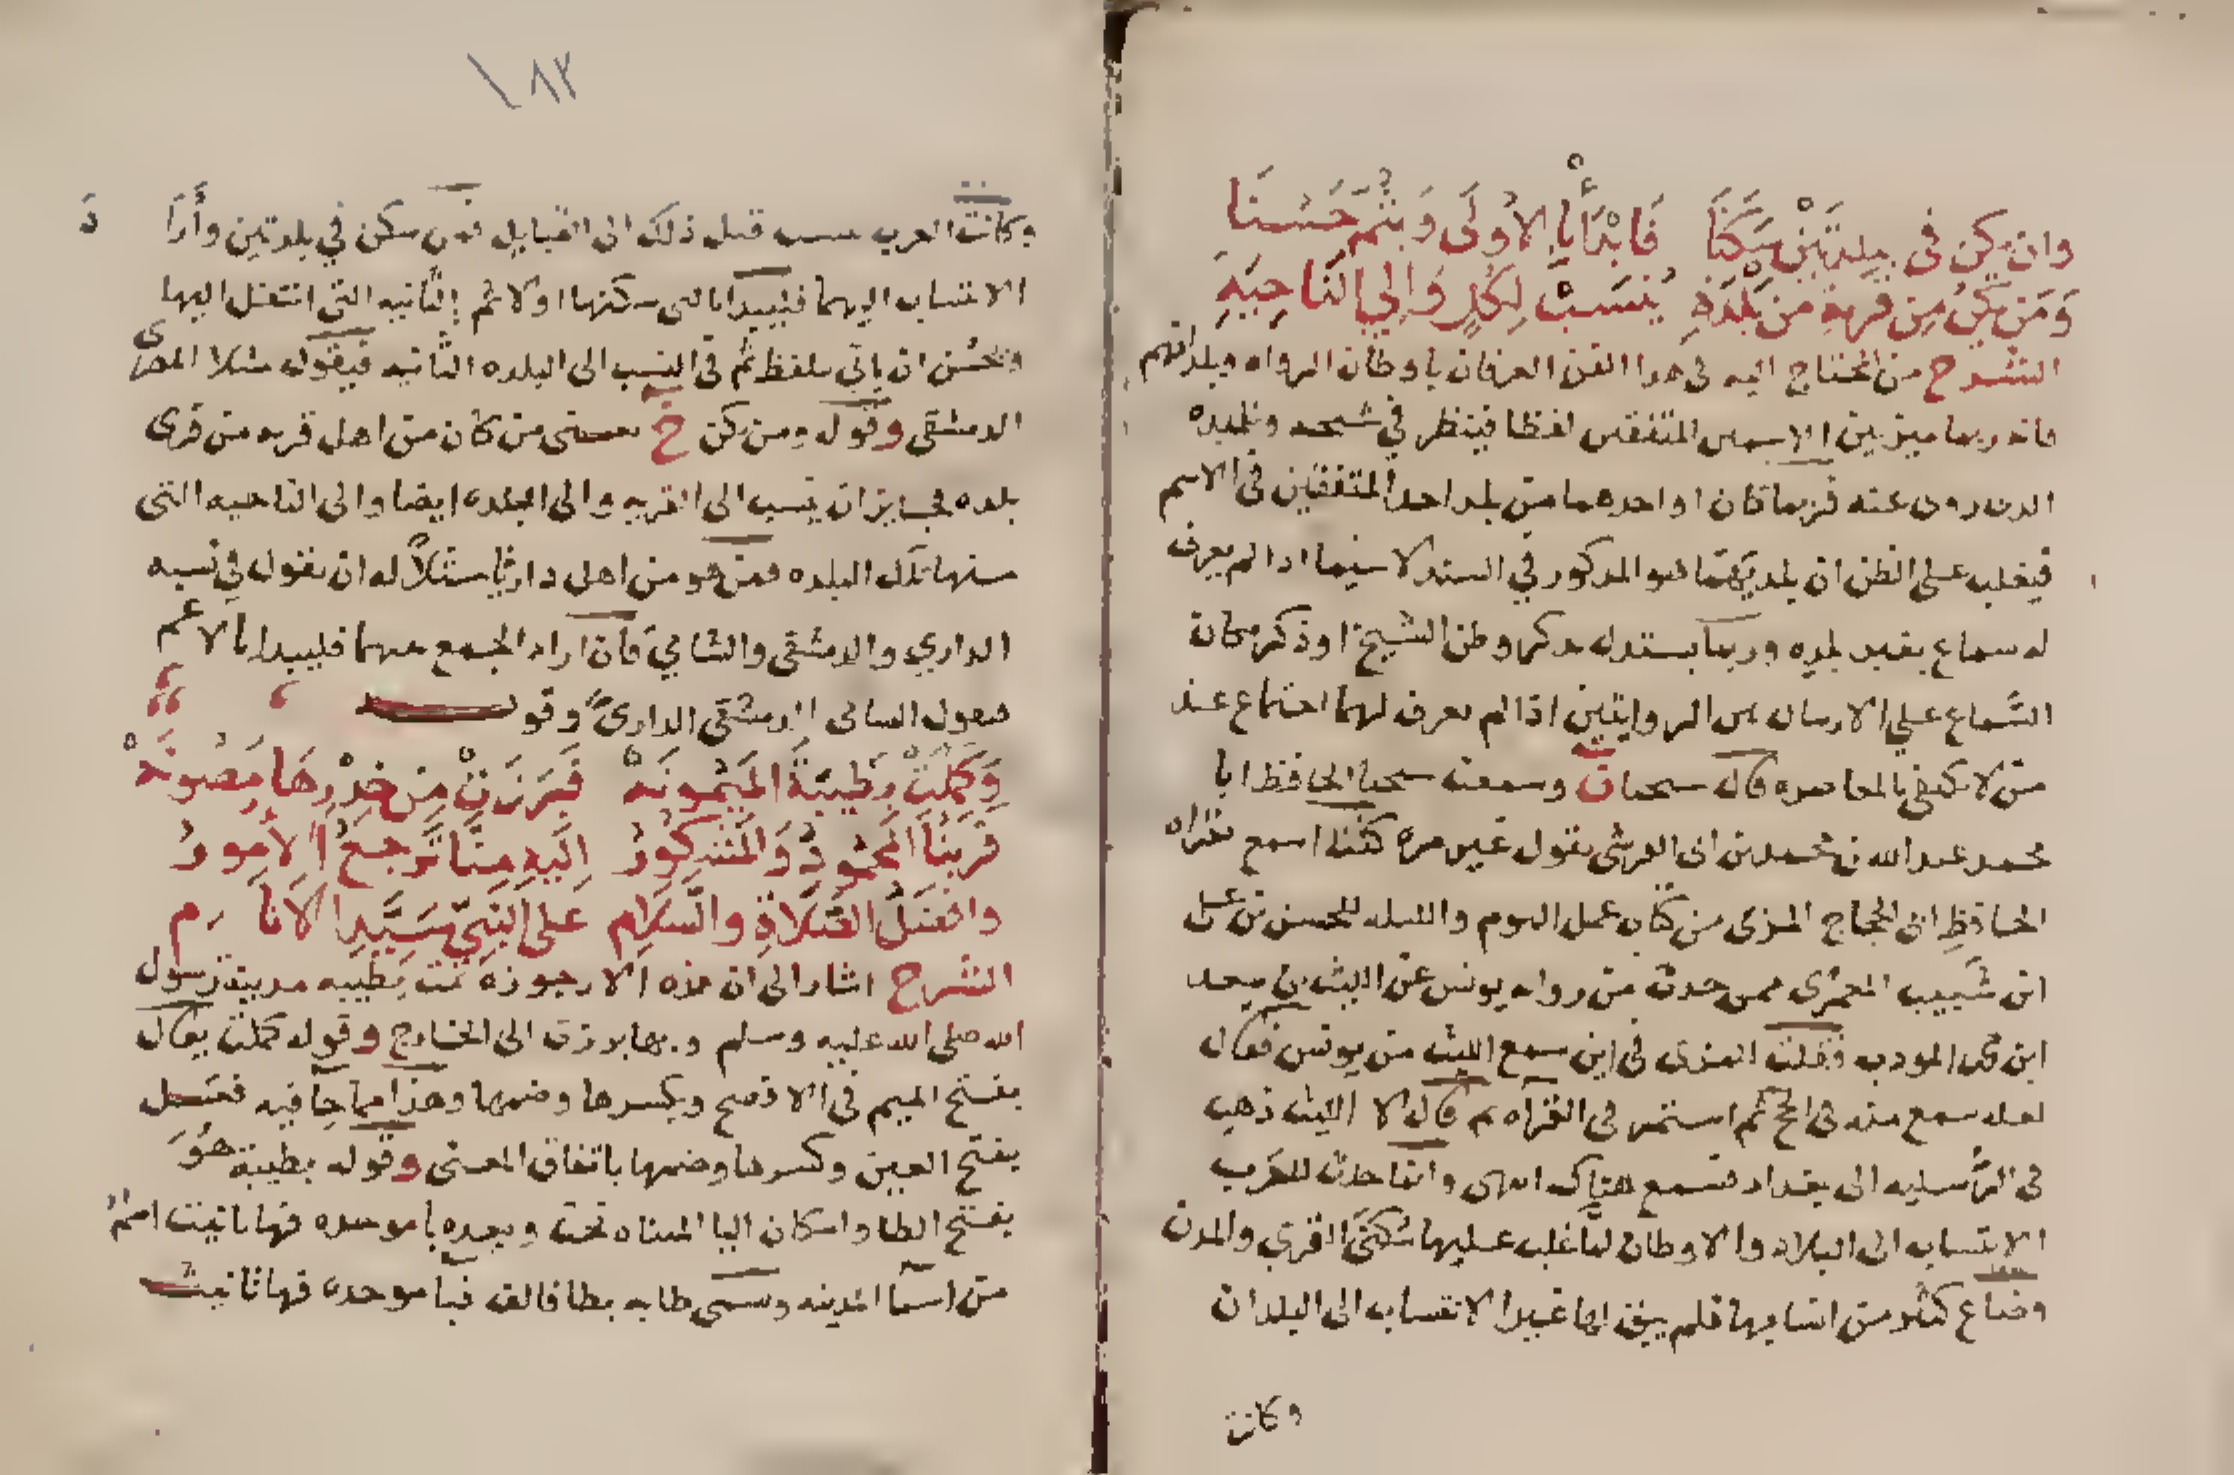 وان يكن في بلدتين سكنا فابدأ بالأولى وبثم حسنا
ومن يكن من قرية من بلدة ينسب لكل والى الناحية
الشرح من المحتاج اليه فى هدا الفن العرفان باوطان الرواه وبلدانهم
فانه ربما ميز بين الاسمين المتفقين لفظا فينظر في شيخه وتلميده
الدى روى عنه فربما كان او احدهما من بلد احد المتفقين في الاسم
فيغلب على الظن ان بلديهما هو المدكور في السند لا سيما ادا لم يعرف
له سماع بغير بلده وربما يستدل بدكر وطن الشيخ او ذكر مكان
السماع على الارسال بين الراويين اذا لم يعرف لهما اجتماع عند
من لا يكتفي بالمعاصره قال شيخنا ن وسمعت شيخنا الحافظ ابا
محمد عبد الله بن محمد بن ابى القرشى يقول غير مره كنت اسمع بقراه
الحافظ ابى الحجاج المزى من كتاب عمل اليوم والليله للحسن بن على
ابن شبيب المعمري فمر حديث من روايه يونس عن الليث بن سعد
ابن محمد المودب فقلت للمزى في اين سمع الليث من يونس فقال
لعله سمع منه فى الحج ثم استمر فى القراه ثم قال لا الليث ذهب
فى الرسليه الى بغداد فسمع هناك انتهى وانما حدث للعرب
الانتساب الى البلاد والاوطان لما غلب عليها سكنى القرى والمدن
وضاع كثير من انسابها فلم يبق لها غير الانتساب الى البلدان
وكانت
١٨٢
وكانت العرب تنسب قبل ذلك الى القبايل فمن سكن في بلدتين وأراد
الانتساب اليهما فليبدا بالتى سكنها اولا ثم بالثانيه التى انتقل اليها
ويحسن ان ياتي بلفظ ثم في النسب الى البلده الثانيه فيقول مثلا المصرى
الدمشقى وقوله ومن يكن خ يعنى من كان من اهل قريه من قرى
بلده فجايز ان ينسب الى القريه والى البلده ايضا والى الناحيه التى
منها تلك البلده فمن هو من اهل داريا مثلا له ان يقول في نسبه
الداري والدمشقى والشامي فان اراد الجمع بينهما فليبدا بالاعم
فيقول الشامى الدمشقى الدارى وقو
وكملت بطيبة الميمونه فبرزت من خدرها مصونه
فربنا المحمود والمشكور اليه منا ترجع الأمور
وافضل الصلاة والسلام على النبي سيد الأنام
الشرح اشار الى ان هذه الارجوزه تمت بطيبه مدينة رسول
الله صلى الله عليه وسلم وبها برزت الى الخارج وقوله كملت يقال
بفتح الميم فى الافصح ويكسرها وضمها وهذا مما جا فيه فعل
بفتح العين وكسرها وضمها باتفاق المعنى وقوله بطيبة هو
بفتح الطا واسكان اليا المثناه تحت وبعده با موحده فها تانيث اسم
من اسما المدينه وتسمى طابه بطا فالف فبا موحده فها تانيث